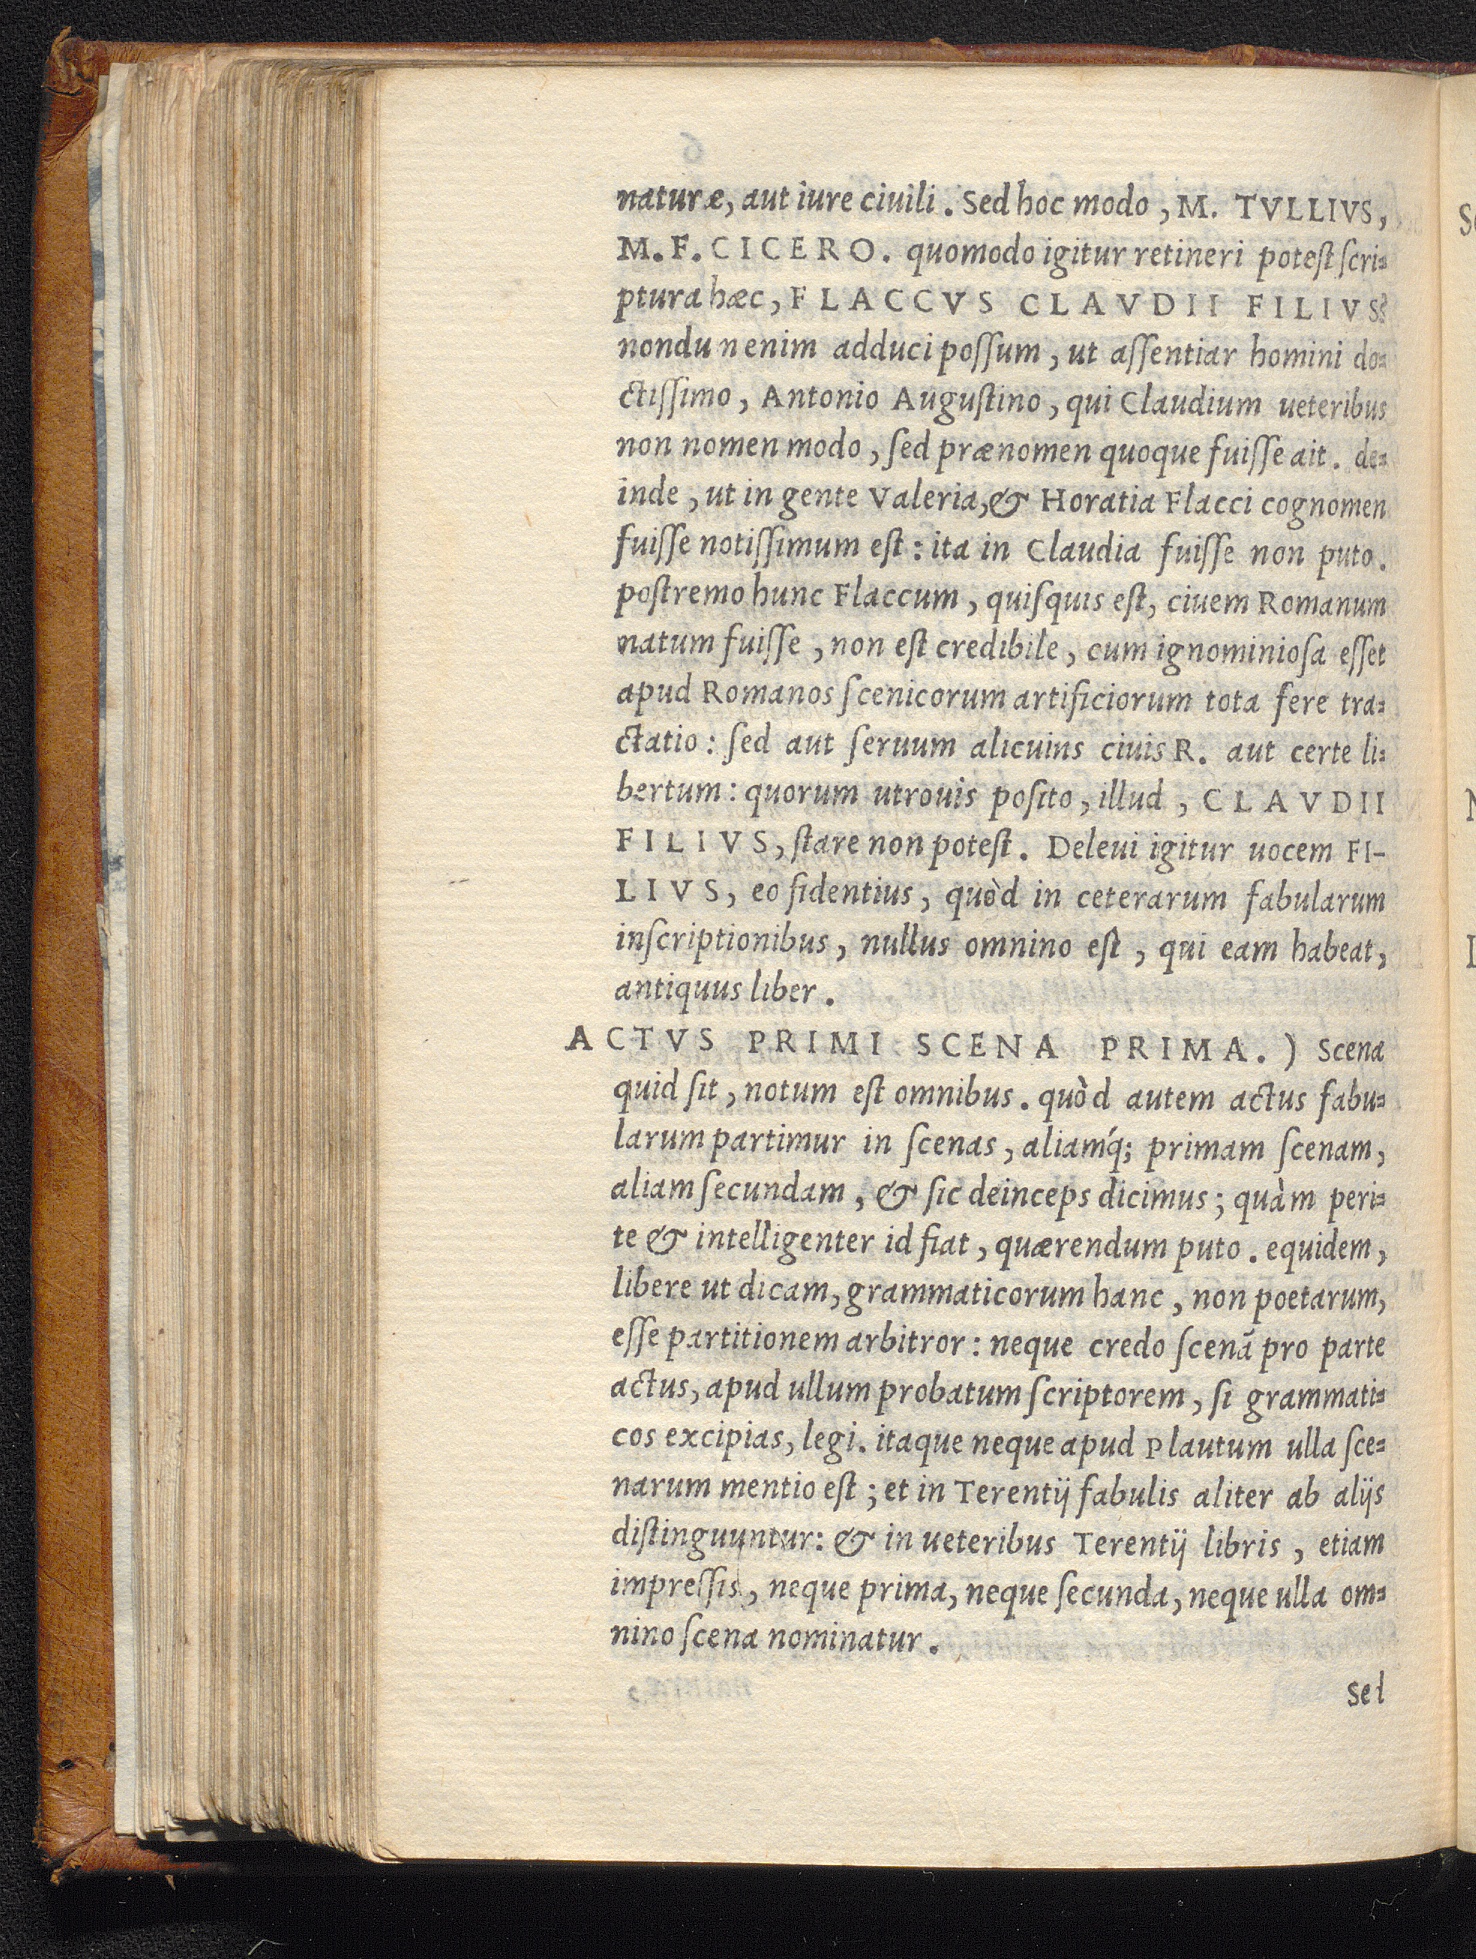 naturæ, aut iure ciuili. Sed hoc modo, M. TVLLIVS,
M. F. CICERO. quomodo igitur retineri potest scri-
ptura hæc, FLACCVS CLAVDII FILIVS?
nondu n enim adduci possum, ut assentiar homini do-
ctissimo, Antonio Augustino, qui Claudium ueteribus
non nomen modo, sed prænomen quoque fuisse ait. de-
inde, ut in gente Valeria, & Horatia Flacci cognomen
fuisse notissimum est: ita in Claudia fuisse non puto.
postremo hunc Flaccum, quisquis est, ciuem Romanum
natum fuisse, non est credibile, cum ignominiosa esset
apud Romanos scenicorum artificiorum tota fere tra-
ctatio: sed aut seruum alicuins ciuis R. aut certe li-
bertum: quorum utrouis posito, illud, CLAVDII
FILIVS, stare non potest. Deleui igitur uocem FI-
LIVS, eo fidentius, quòd in ceterarum fabularum
inscriptionibus, nullus omnino est, qui eam habeat,
antiquus liber.
ACTVS PRIMI SCENA PRIMA.) Scena
quid sit, notum est omnibus. quòd autem actus fabu-
larum partimur in scenas, aliamq́; primam scenam,
aliam secundam, & sic deinceps dicimus; quàm peri-
te & intelligenter id fiat, quærendum puto. equidem,
libere ut dicam, grammaticorum hanc, non poetarum,
esse partitionem arbitror: neque credo scenā pro parte
actus, apud ullum probatum scriptorem, si grammati-
cos excipias, legi. itaque neque apud Plautum ulla sce-
narum mentio est; et in Terentij fabulis aliter ab alijs
distinguuntur: & in ueteribus Terentij libris, etiam
impressis, neque prima, neque secunda, neque ulla om-
nino scena nominatur.
Sed